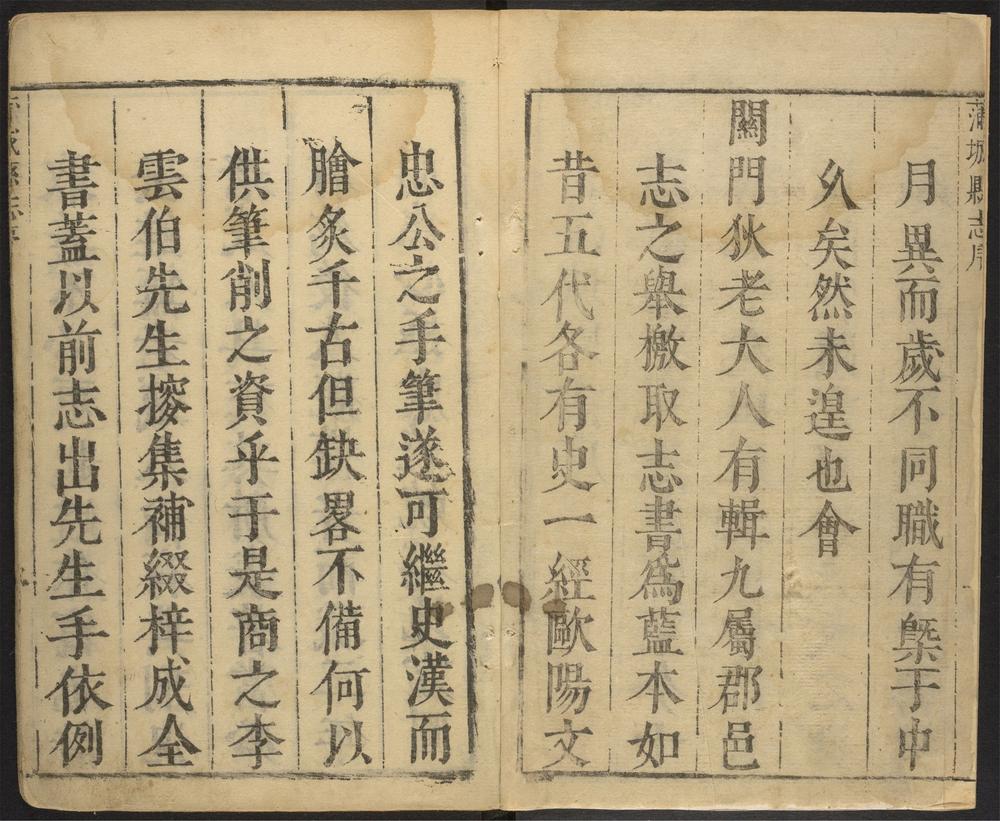 蒲城縣志序
月異而歲不同職有槩于中
久矣然未遑也會
關門狄老大人有輯九屬郡邑
志之舉檄取志書爲藍本如
昔五代各有史一經歐陽文
忠公之手筆遂可繼史漢而
膾炙千古但缺畧不備何以
供筆削之資乎于是商之李
雲伯先生搜集補綴梓成全
書蓋以前志出先生手依例